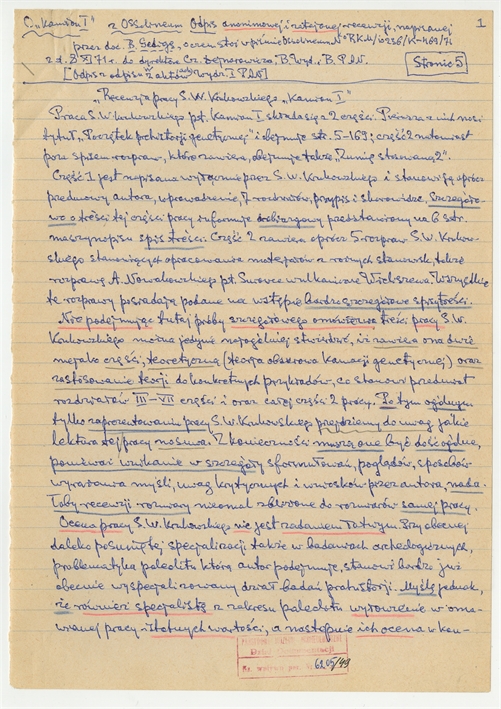 O „Kamion I" z Ossolineum Odpis anonimowej i zatajonej recenzji, napisanej 1
przez doc. B. przy piśmie Ossolineum N° B.K.
z d. 1971 r. do dyrektora Cz. B. Wyd. B. P.AN. Stronic 5
[Odpis z odpisu z aktów wydz. I PAN]
„Recenzja pracy S.W. Krukowskiego „Kamion I"
Praca S.W. Krukowskiego pt. Kamion I składa się z 2 części. Pierwsza z nich nosi
tytuł „Początek prehistorji genetycznej" i obejmuje str. 5-169; część 2 natomiast
poza spisem rozpraw, które zawiera, obejmuje także
Część 1 jest napisana wyłącznie przez S.W. Krukowskiego i stanowią ją oprócz
przedmowy autora, wprowadzenie, 7 rozdziałów, przypisy i skorowidze. Szczegóło-
wo o treści tej części pracy informuje dołączony przedstawiony na 6 str.
maszynopisu spis treści. Część 2 zawiera oprócz 5 rozpraw S.W. Krukow-
skiego stanowiących opracowania materjałów z różnych stanowisk, także
rozprawę A. Nowakowskiego pt. Surowce wulkaniczne Wichszewa. Wszystkie
te rozprawy posiadają podane na wstępie bardzo szczegółowe spisy treści.
Nie podejmując tutaj próby szczegółowego omówienia treści pracy S.W.
Krukowskiego można jedynie najogólniej stwierdzić, iż zawiera ona dwie
niejako części, teoretyczną (teorja obszarowa Kamacji genetycznej) oraz
zastosowanie teorji do konkretnych przykładów, co stanowi przedmiot
rozdziałów III-VII części 1 oraz całej części 2 pracy. Po tym ogólnym
tylko zaprezentowaniu pracy S.W. Krukowskiego przejdziemy do uwag jakie
lektura tej pracy nasuwa. Z konieczności muszą one być dość ogólne,
ponieważ wnikanie w szczegóły sformułowań, poglądów, sposobów
wyrażania myśli, uwag krytycznych i wniosków przez autora, nada-
łoby recenzji rozmiary nieomal zbliżone do rozmiarów samej pracy.
Ocena pracy S.W. Krukowskiego nie jest zadaniem łatwym. Przy obecnej
daleko posuniętej specjalizacji także w badaniach archeologicznych,
problematyka paleolitu którą autor podejmuje, stanowi bardzo już
obecnie wyspecjalizowany dział badań prahistorji. Myślę jednak,
że również specjalistę z zakresu paleolitu wyłowienie w oma-
wianej pracy istotnych wartości, a następnie ich ocena w kon-
Nr. 6205/49